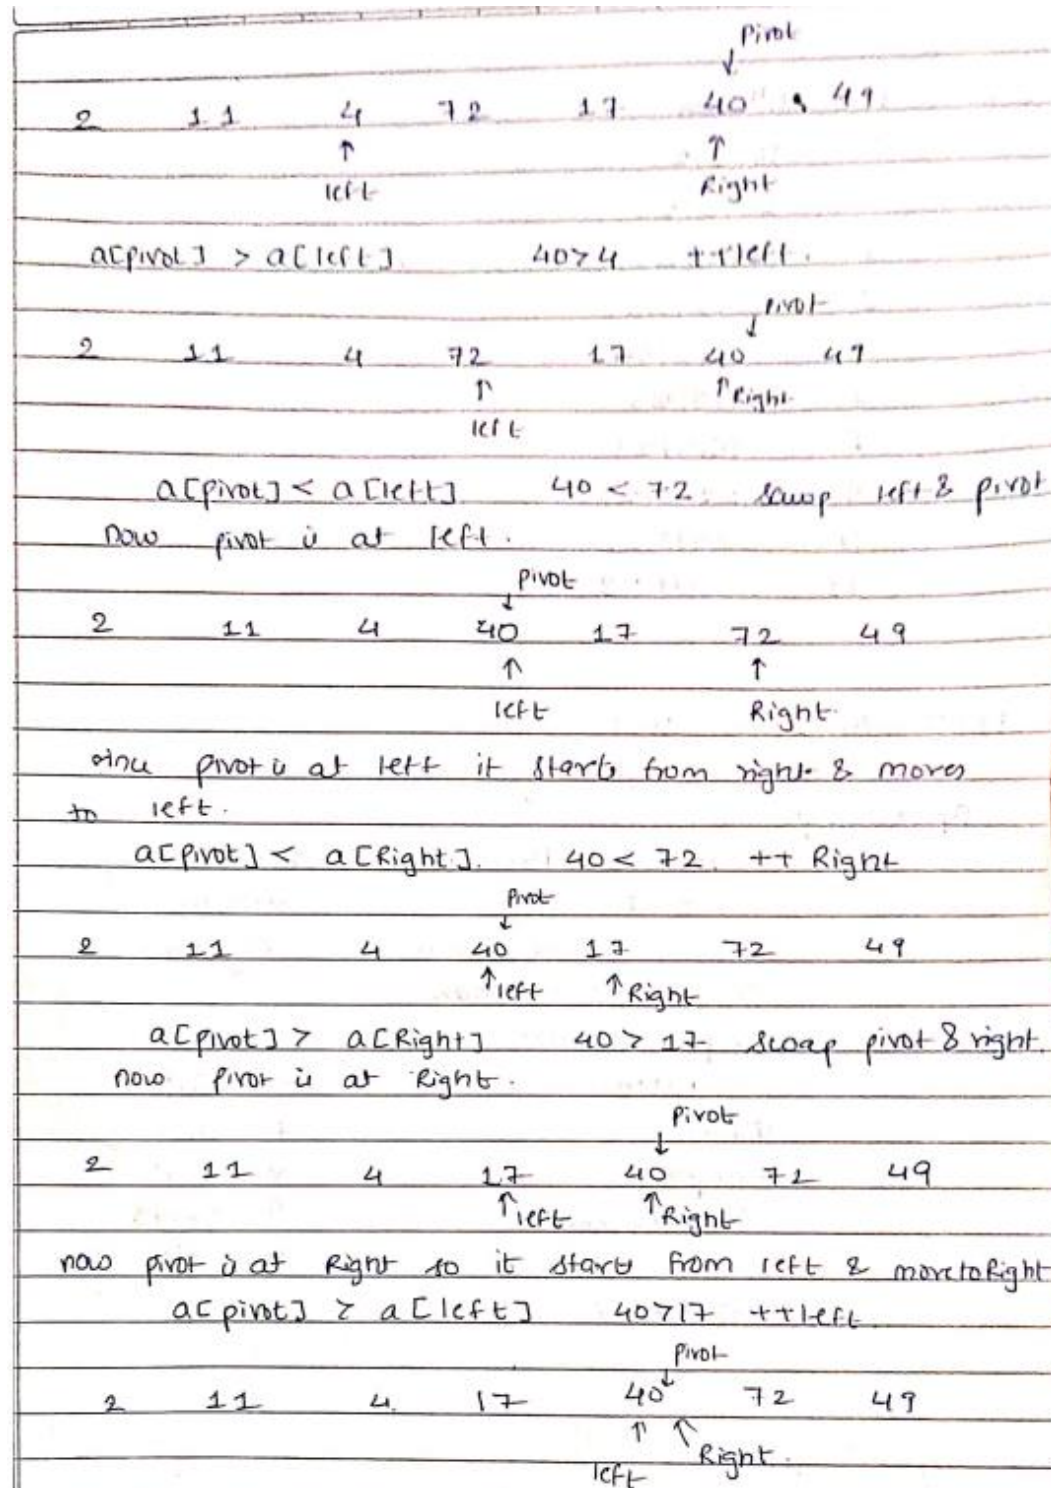 Pivot
↓
2 11 4 72 17 40 49
↑ ↑
left Right
a[pivot] > a[left] 40>4 ++left.
Pivot
↓
2 11 4 72 17 40 49
↑ ↑Right
left
a[pivot] < a[left] 40 < 72 sawp left & pivot
now pivot is at left.
Pivot
↓
2 11 4 40 17 72 49
↑ ↑
left Right
since pivot is at left it starts from right & moves
to left.
a[pivot] < a[Right] 40<72 ++ Right
Pivot
↓
2 11 4 40 17 72 49
↑left ↑Right
a[pivot] > a[Right] 40 > 17 swap pivot & right.
now pivot is at Right.
Pivot
↓
2 11 4 17 40 72 49
↑left ↑Right
now pivot is at Right so it starts from left & move to Right
a[pivot] > a[left] 40>17 ++left
Pivot
↓
2 11 4 17 40 72 49
↑ ↑
left Right.